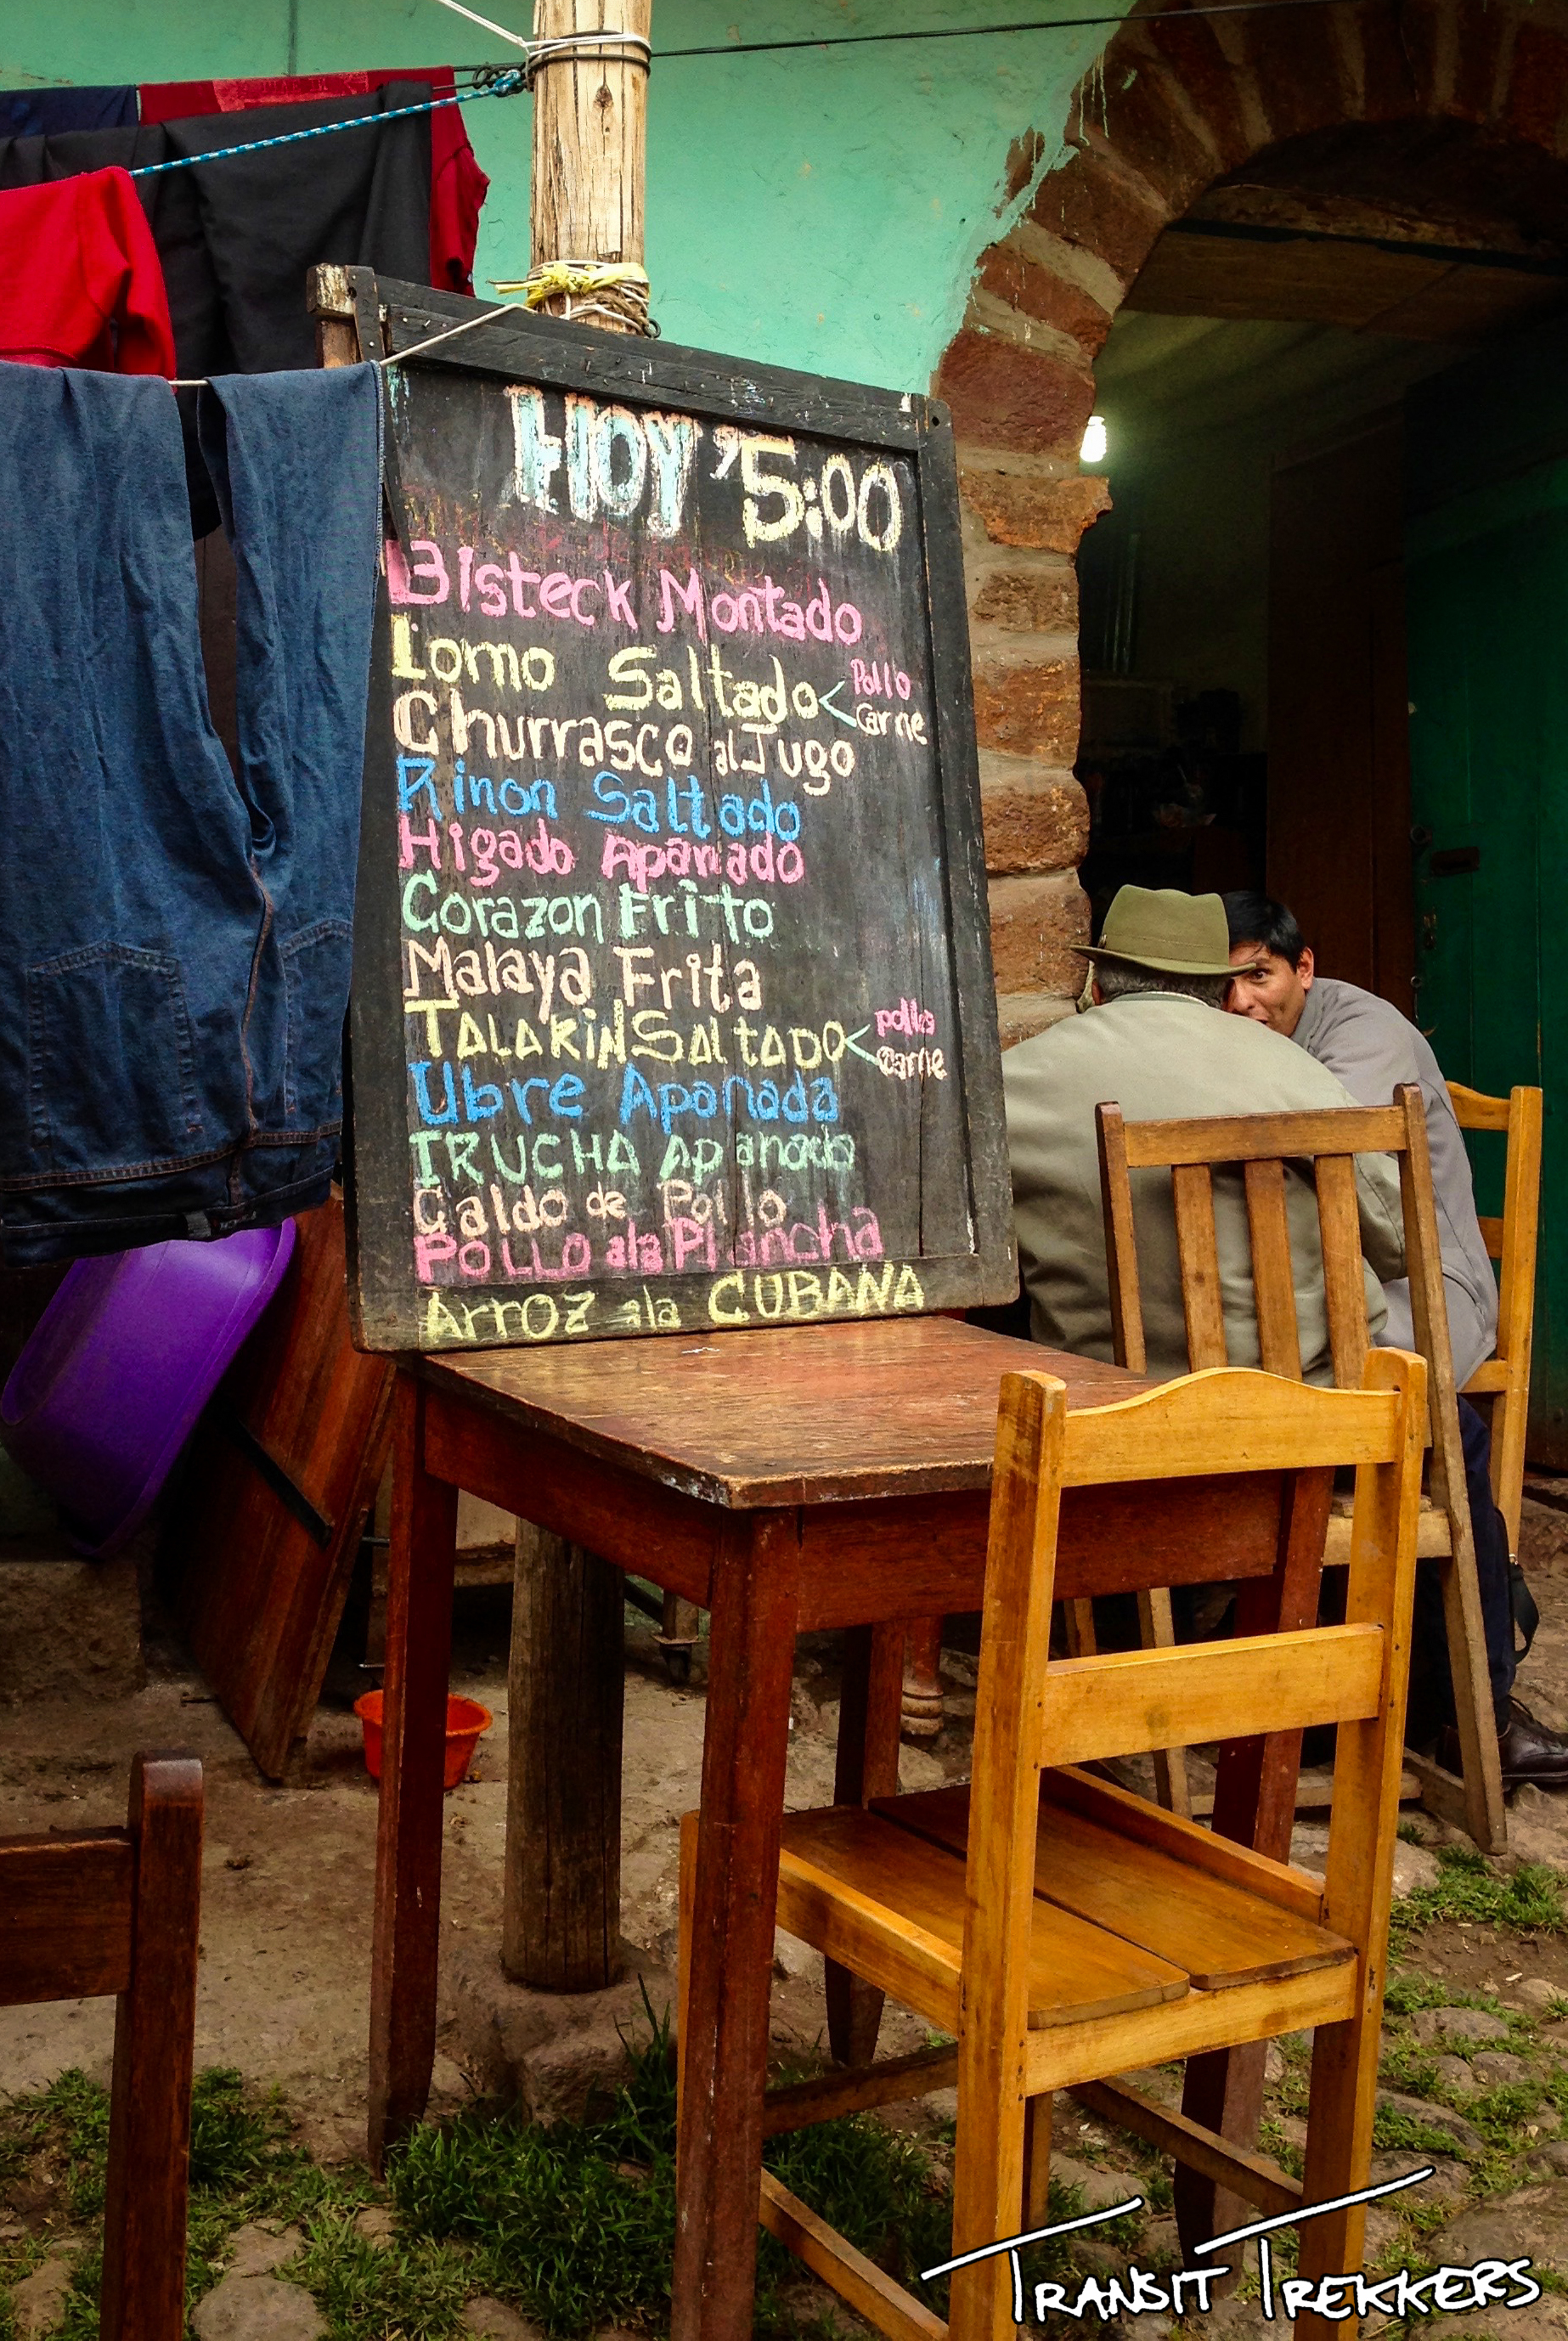 HOY '5:00
Bisteck Montado
Lomo Saltado < Pollo
Carne
Churrasco al Jugo
Rinon Saltado
Higado Apanado
Corazon Frito
Malaya Frita
TALARIN SALTADO < pollo
Carne
Ubre Apanada
TRUCHA Apanado
Caldo de Pollo
POLLO ala Plancha
Arroz ala CUBANA
TRANSIT TREKKERS